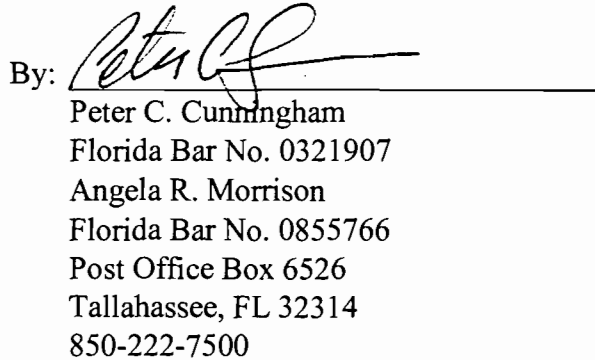 By: Peter C
Peter C. Cunningham
Florida Bar No. 0321907
Angela R. Morrison
Florida Bar No. 0855766
Post Office Box 6526
Tallahassee, FL 32314
850-222-7500